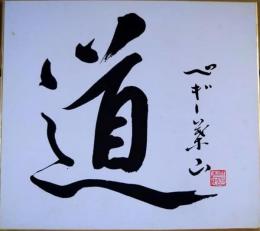 道
ペギー葉山